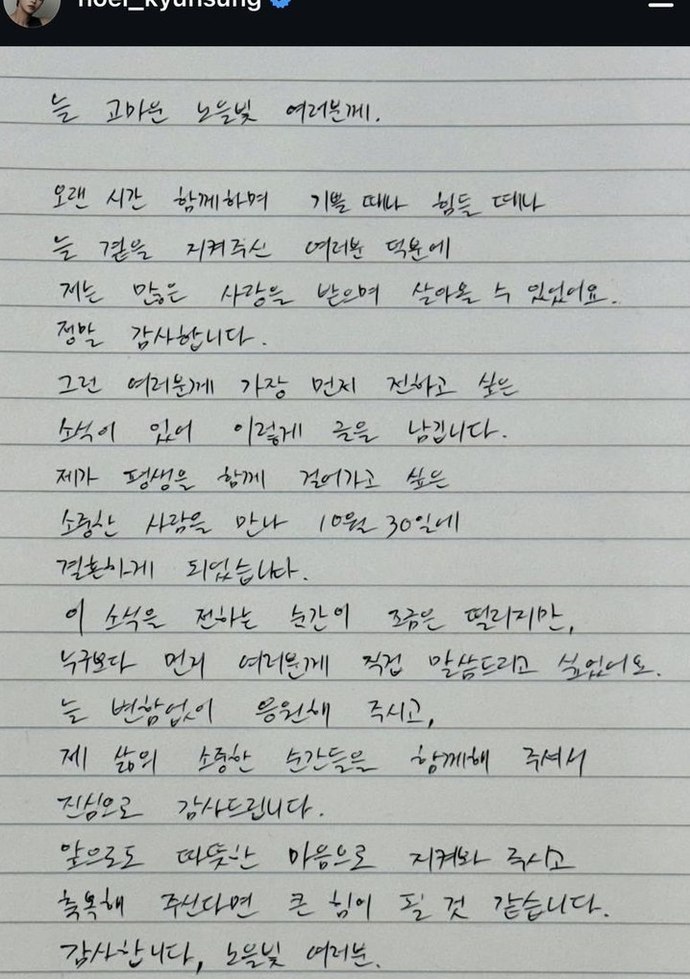 noel_kyunsung
늘 고마운 노을빛 여러분께.
오랜 시간 함께하며 기쁠 때나 힘들 때나
늘 곁을 지켜주신 여러분 덕분에
저는 많은 사랑을 받으며 살아올 수 있었어요.
정말 감사합니다.
그런 여러분께 가장 먼저 전하고 싶은
소식이 있어 이렇게 글을 남깁니다.
제가 평생을 함께 걸어가고 싶은
소중한 사람을 만나 10월 30일에
결혼하게 되었습니다.
이 소식을 전하는 순간이 조금은 떨리지만,
누구보다 먼저 여러분께 직접 말씀드리고 싶었어요.
늘 변함없이 응원해 주시고,
제 삶의 소중한 순간들을 함께해 주셔서
진심으로 감사드립니다.
앞으로도 따뜻한 마음으로 지켜봐 주시고
축복해 주신다면 큰 힘이 될 것 같습니다.
감사합니다, 노을빛 여러분.